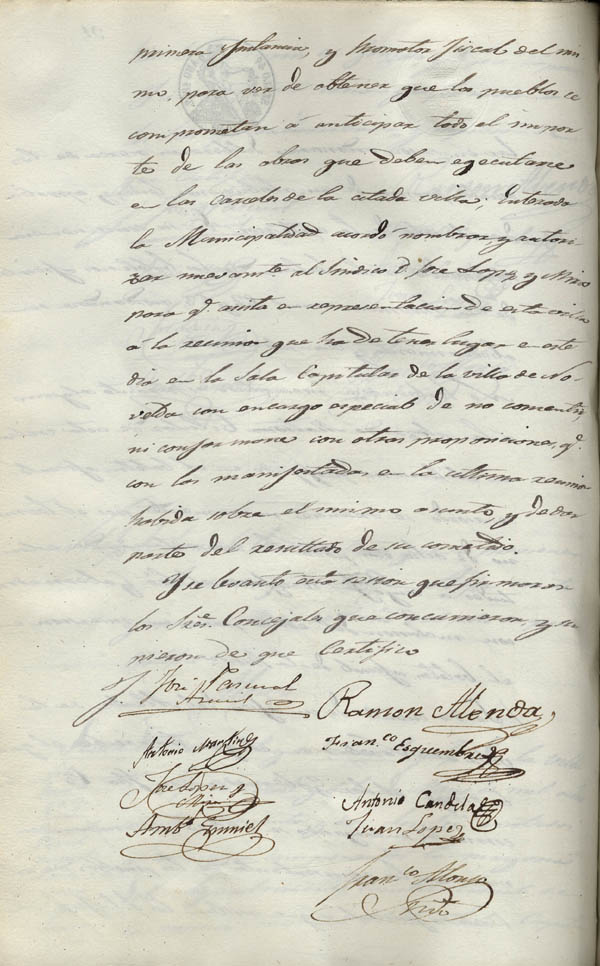 primera Instancia, y Promotor Fiscal del mis
mo, para ver de obtener que los pueblos se
comprometan á anticipar todo el impor
te de las obras que deben egecutarse
en las Carceles de la citada villa; Enterada
la Municipalidad acordó nombrar y autori
zar nuevamte. al Sindico D. José Lopez y Mira
para q. asista en representacion de esta villa
á la reunion que ha de tener lugar en este
dia en la Sala Capitular de la villa de No
velda con encargo especial de no consentir,
ni conformarse con otras proposiciones, q.
con las manifestadas en la ultima reunion
habida sobre el mismo asunto, y de dar
parte del resultado de su cometido.
Y se levantó esta sesion que firmaron
los Sres. Concejales que concurrieron, y su
pieron de que Certifico
José Pascual
Ramon Alenda
Antonio Martinez
Franco. Esquembre
Jose Lopez
Mira
Antonio Candela
Juan Lopez
Franco. Alonso